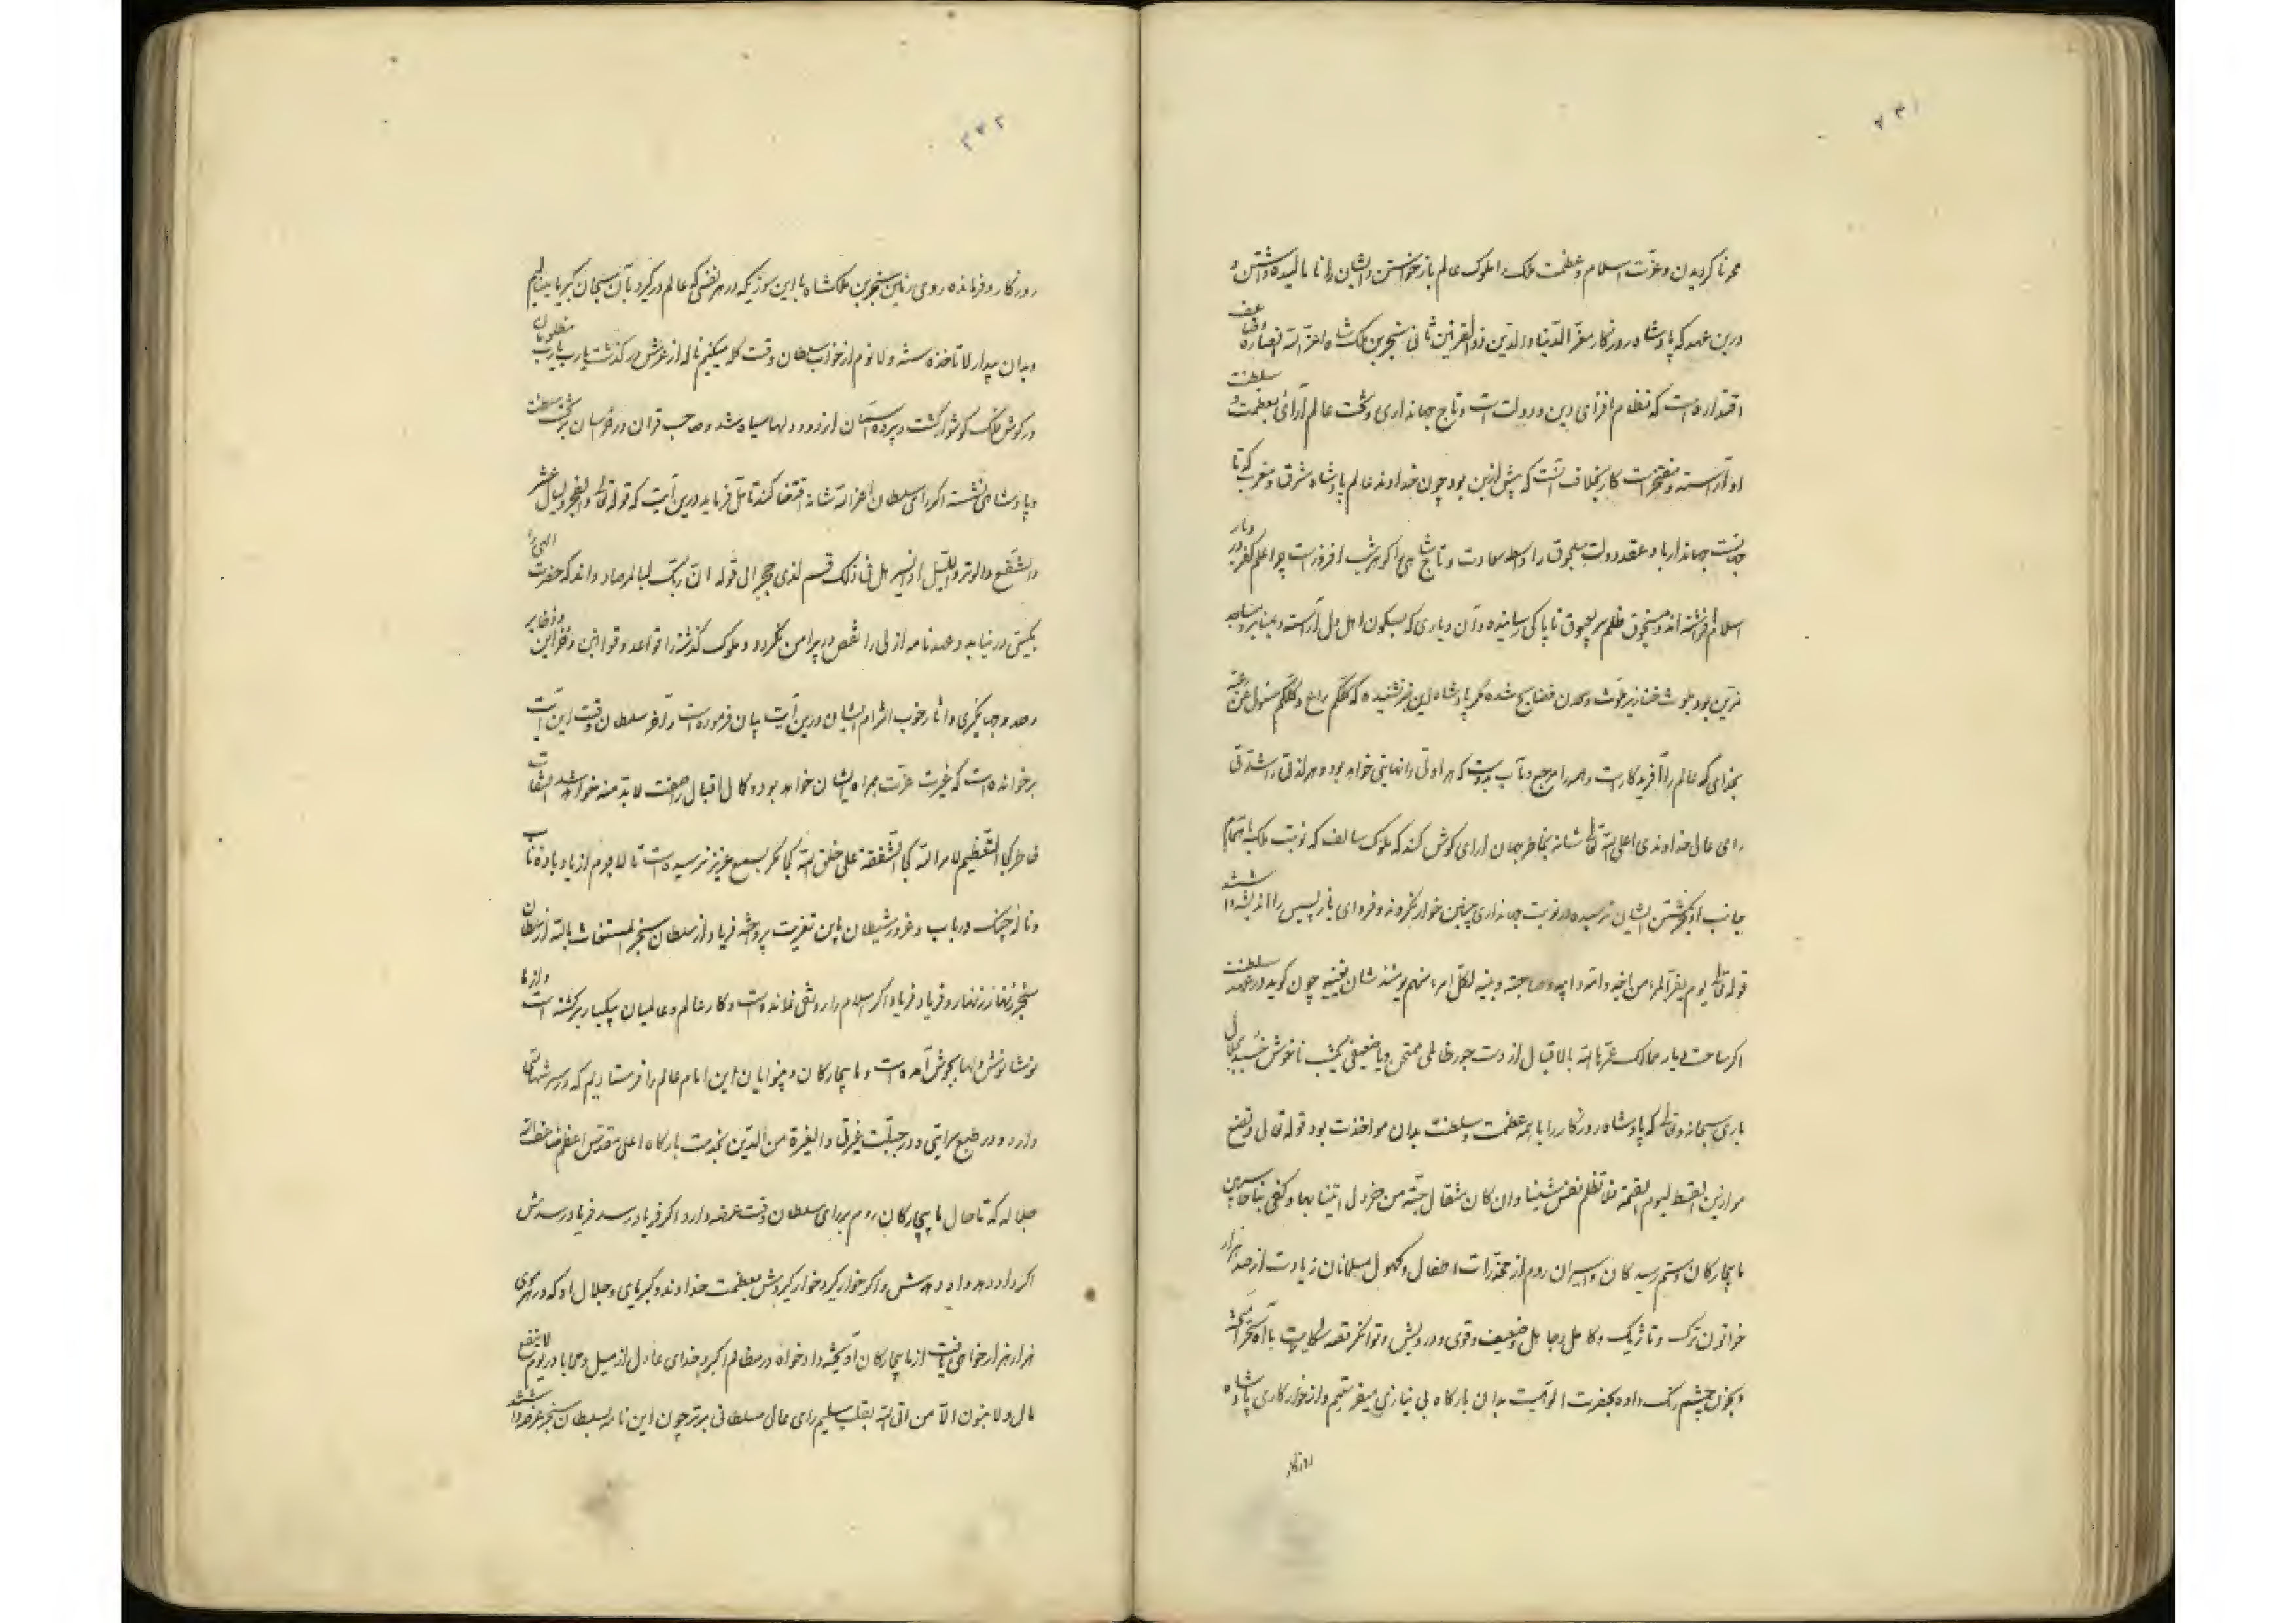 ۲۳۱
محرنا کردیدن و عزت اسلام و عظمت ملک را ملوک عالم باز خواستن و ایشان را نا مالیده داشتن و
درین عهد که پادشاه روزگار معز الدنیا والدین ذو القرنین ثانی سنجر بن ملک شاه اعز الله انصاره وضاعف
اقتداره است که نظام افزای دین و دولت است و تاج جهانداری و تخت عالم آرائی بعظمت و سلطنت
او آراسته و مفتخر است کار بخلاف آنست که پیش ازین بود چون خداوند عالم پادشاه شرق و مغرب که تا
جهانست جهاندار باد عقد دولت سلجوق را واسطه سعادت و تاج شاهی را گوهر شب افروزست چرا علم کفر در دیار
اسلام افراشته اند و منجوق ظلم بر عیوق ناپاکی رسانیده و آن دیاری که بسکون اهل دل آراسته و بمنابر و مساجد
مزین بود بلوث خنازیر ملوث و معدن فضایح شده مگر پادشاه این خبر نشنیده که کلکم راع و کلکم مسئول عن رعیته
بخدای که عالم را آفریدگارست و همه را مرجع و مآب بدوست که هر اولی را نهایتی خواهد بود و هر لذتی را شدتی
رای عالی خداوندی اعلی الله تعالی شانه بخاطر جهان آرای گوش کند که ملوک سالف که نوبت ملک باهتمام
جانب او بگوش ایشان نرسیده در نوبت جهانداری چنین خوار نکردند و فردای باز پسین را اندیشه داشتند
قوله تعالی یوم یفر المرء من اخیه وامه وابیه وصاحبته وبنیه لکل امرء منهم یومئذ شان یغنیه چون گوید در عهد سلطنت
اگر ساحت دیار ممالک عمرها الله بالاقبال از دست جور ظالمی ممتحن و یا ضعیفی یکشب ناخوش خسبد بجلال
باری سبحانه وتعالی که پادشاه روزگار را با همه عظمت و سلطنت بدان مواخذت بود قوله تعالی ونضع
موازین القسط لیوم القیمة فلا تظلم نفس شیئا وان کان مثقال حبة من خردل اتینا بها وکفی بنا حاسبین
ما بیچارگان و ستم رسیدگان و اسیران روم از مخدرات و اطفال و کهول مسلمانان زیادت از صد هزار
خواتون ترک و تاژیک و کامل و جاهل و ضعیف و قوی و درویش و توانگر قصه شکایت با آه سحر آمیخته
و بخون چشم رنگ داده بحضرت الوهیت بدان بارگاه بی نیازی میفرستیم و از خوار کاری پادشاه
روزگار
۲۳۲
روزگار و فرمانده روی زمین سنجر بن ملکشاه با این سوزیکه در هر نفسی که عالم در گیرد بآن سبحان کبریا مینالیم
و بدان بیدار لا تاخذه سنة ولا نوم از خواب سلطان وقت گله میکنیم ناله از عرش در گذشت یارب یارب مظلومان
در گوش ملک گوشوار گشت و پرده آسمان از دود دلها سیاه شد و صاحب قران در خراسان بر تخت سلطنت
و پادشاهی نشسته اگر رای سلطان اعز الله شانه اقتضا کند تامل فرماید درین آیت که قوله تعالی والفجر ولیال عشر
والشفع والوتر واللیل اذا یسر هل فی ذلک قسم لذی حجر الی قوله ان ربک لبالمرصاد داند که حضرت الهی را
بکیتی در نیابد و عهد نامه ازلی را نقص در پیرامن نگردد و ملوک گذشته را قواعد و قوانین و خزاین و ذخایر
و صد و جهانگیری و آثار خوب ایشان درین آیت بیان فرموده است و آخر سلطان وقت این آیت
برخوانده است که غیرت عزت همراه ایشان خواهد بود و کمال اقبال را صفت لابد منه خواهد شد التفات
خاطر کجا التعظیم لامر الله کجا الشفقة علی خلق الله کجا مگر بسمع عزیز نرسیده است تا لاجرم از یاد باده ناب
و ناله چنک و رباب و غرور شیطان باین تعزیت پرداخته فریاد از سلطان سنجر المستغاث بالله از سلطان
سنجر زنهار زنهار و فریاد فریاد اگر اسلام را رونقی نمانده است و کار عالم و عالمیان بیکبار برگشته است و از ما
نوشانوش دلها بجوش آمده است و ما بیچارگان و بینوایان این امام عالم را فرستادیم که در سر شهامتی
دارد و در طبع سرایتی و در جبلت غیرتی والغیرة من الدین بخدمت بارگاه اعلی مقدس اعظم ضاعف الله
جلاله که تا حال ما بیچارگان روم برای سلطان وقت عرضه دارد اگر فریاد رسد فریاد رسدش
اگر داد دهد داد دهدش و اگر خوار گیرد خوار گیردش بعظمت خداوند و کبریای و جلال او که در هر موی
هزار هزار خواجی یافت از ما بیچارگان آویخته دادخواه در مظالم اکبر و خدای عادل از میل و محابا در یوم لا ینفع
مال ولا بنون الا من اتی الله بقلب سلیم رای عالی سلطانی برتر چون این نامه بسلطان سنجر عرضه داشتند